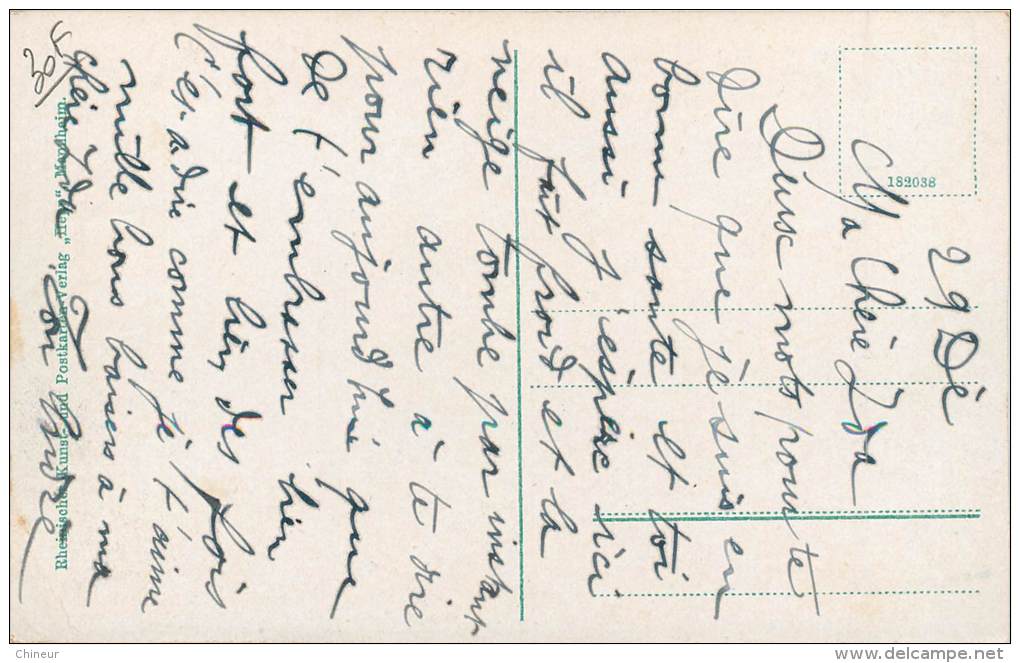 29 Dè
Ma Chère Ida
Deuse mots pour te
dire que je suis en
bonn sante et toi
aussi j'éspèse ici
il fait froid et la
neige tombe par instant
rien autre à te dire
pour aujourd'hui que
de t'embrasser bien
fort et bien des fois
C'és-a-dire comme je t'aime
mille bons baisers à ma
chère Ida
Ton André
30F
182038
Rheinische Kunst- und Postkarten-Verlag „ “ Mannheim.
Chineur
delcampe.net